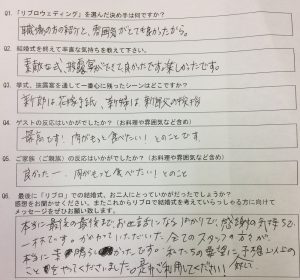 Q1. 「リブロウェディング」を選んだ決め手は何ですか?
職場の方の紹介と、雰囲気がとても良かったから。
Q2. 結婚式を終えて率直な気持ちを教えて下さい。
素敵な式、披露宴ができて良かったです。楽しかったです。
Q3. 挙式、披露宴を通して一番心に残ったシーンはどこですか?
新郎は花嫁の手紙、新婦は新郎父の挨拶
Q4. ゲストの反応はいかがでしたか?(お料理や雰囲気など含め)
最高です! 肉がもっと食べたい! とのことです
Q5. ご家族(ご親族)の反応はいかがでしたか?(お料理や雰囲気など含め)
良かった… 肉がもっと食べたい! とのこと
Q6. 最後に「リブロ」での結婚式、お二人にとっていかがだったでしょうか?
感想をお聞かせください。またこれからリブロで結婚式を考えていらっしゃる方に向けて
メッセージをぜひお願い致します。
本当に最後の最後までお世話になりっぱなしで、感謝の気持ちで
一杯です。かかわっていただいた全てのスタッフの方々が
本当に 素晴らしかったです。私たちの要望に予想以上の
ことをやってくださいました。是非ご利用してください